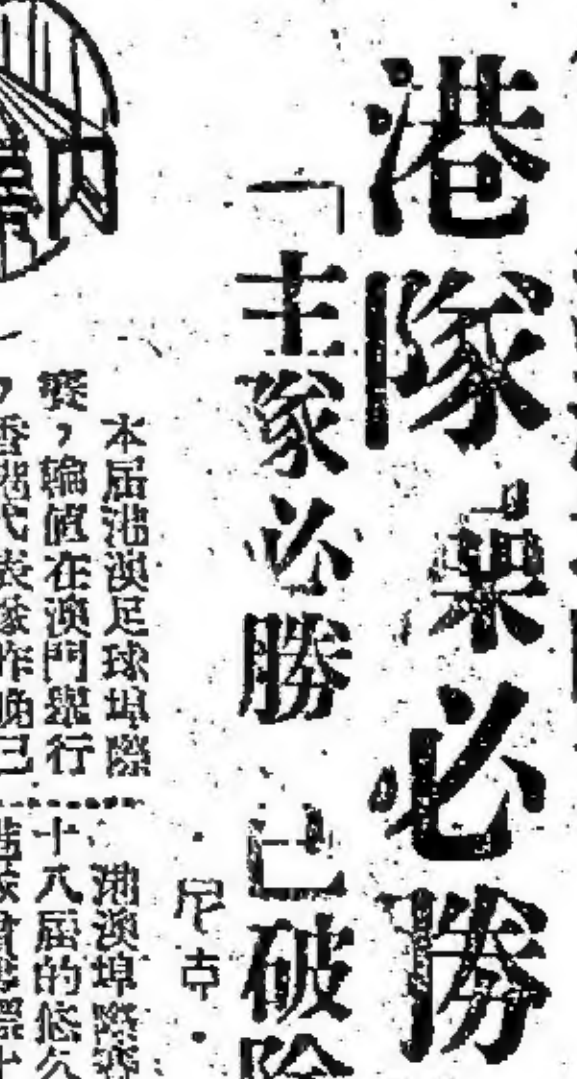 港隊操必勝
「主隊必勝 已破除
·尼克·
本屆港澳足球埠際
賽，輪値在澳門舉行
，香港代表隊昨晚已
港澳埠際賽
十八屆的悠久